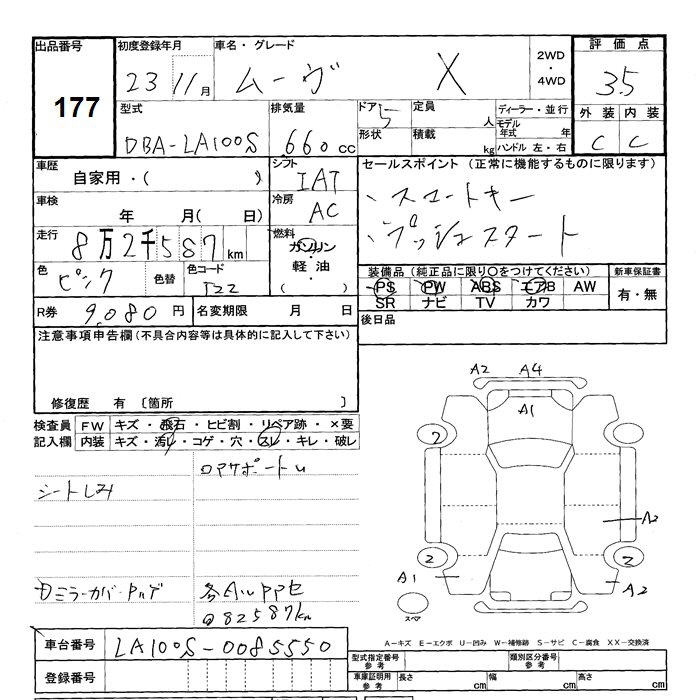 出品番号 初度登録年月 車名・グレード 評価点
177
23 11月 ムーヴ X 2WD・4WD 3.5
型式 排気量 ドア 5 定員 人 ディーラー・並行 外装 内装
形状 積載 kg モデル年式 年
DBA-LA100S 660cc ハンドル 左・右 C C
車歴 シフト セールスポイント (正常に機能するものに限ります)
自家用・( ) IAT
、スマートキー
車検 冷房
年 月( 日) AC
、プッシュスタート
走行 燃料
8万2千587km ガソリン
軽・油
( )
色 色替 色コード 装備品(純正品に限り○をつけてください) 新車保証書
ピンク T22 PS PW ABS エアB AW 有・無
SR ナビ TV カワ
R券 9,080円 名変期限 月 日 後日品
注意事項申告欄(不具合内容等は具体的に記入して下さい)
修復歴 有 〔箇所 〕
検査員 FW キズ・飛石・ヒビ割・リペア跡・×要
記入欄 内装 キズ・汚レ・コゲ・穴・スレ・キレ・破レ
ロアサポートU
シートしみ
ミラーカバーPハゲ
各AUPP
82587km
A2 A4
A1
2
A2
2 2
A1 A2
スペア
A-キズ E-エクボ U-凹み W-補修跡 S-サビ C-腐食 XX-交換済
車台番号 LA100S-0085550
型式指定番号 参考 類別区分番号 参考
登録番号 車庫証明用 参考 長さ cm 幅 cm 高さ cm